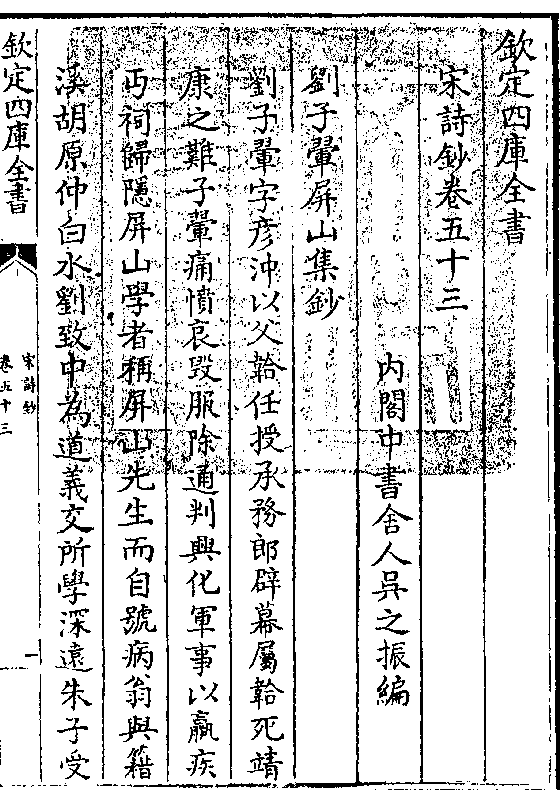 欽定四庫全書
宋詩鈔卷五十三
內閣中書舍人吳之振編
劉子翬屏山集鈔
劉子翬字彦沖以父韐任授承務郎辟幕屬韐死靖
康之難子翬痛憤哀毀服除通判興化軍事以羸疾
丐祠歸隱屏山學者稱屏山先生而自號病翁與籍
溪胡原仲白水劉致中為道義交所學深遠朱子受
欽定四庫全書
宋詩鈔
卷五十三
一